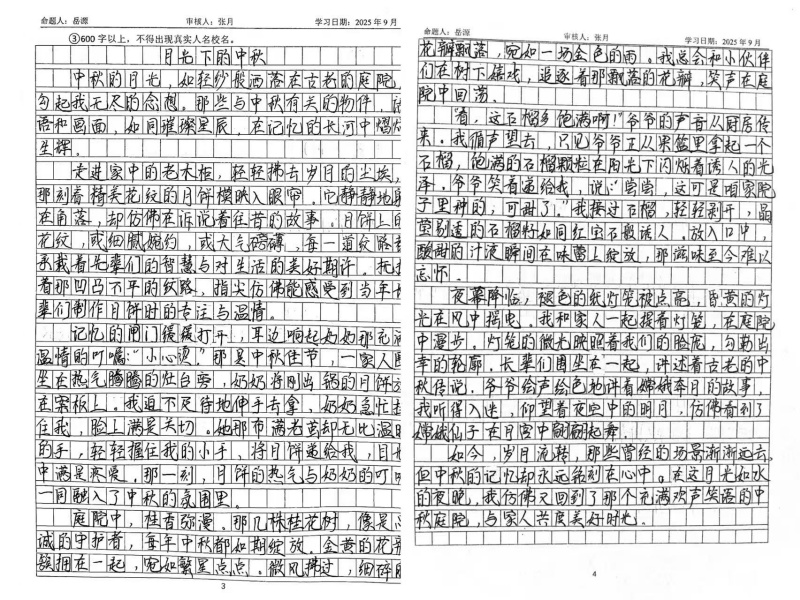 命题人：岳源 审核人：张月 学习日期：2025 年 9 月
③600 字以上，不得出现真实人名校名。
月光下的中秋
中秋的月光，如轻纱般洒落在古老的庭院，
勾起我无尽的念想。那些与中秋有关的物件，话
语和画面，如同璀璨星辰，在记忆的长河中熠熠
生辉。
走进家中的老木柜，轻轻拂去岁月的尘埃，
那刻着精美花纹的月饼模映入眼帘。它静静地躺
在角落，却仿佛在诉说着往昔的故事。月饼上的
花纹，或细腻婉约，或大气磅礴，每一道纹路都
承载着先辈们的智慧与对生活的美好期许。抚摸
着那凹凸不平的纹路，指尖仿佛能感受到当年长
辈们制作月饼时的专注与温情。
记忆的闸门缓缓打开，耳边响起奶奶那充满
温情的叮嘱：“小心烫”那是中秋佳节，一家人围
坐在热气腾腾的灶台旁，奶奶将刚出锅的月饼放
在案板上。我迫不及待地伸手去拿，奶奶急忙拦
住我，脸上满是关切。她那布满老茧却无比温暖
的手，轻轻握住我的小手，将月饼递给我，目光
中满是疼爱。那一刻，月饼的热气与奶奶的叮咛
一同融入了中秋的氛围里。
庭院中，桂香弥漫。那几株桂花树，像是忠
诚的守护者，每年中秋都如期绽放。金黄的花瓣
簇拥在一起，宛如繁星点点。微风拂过，细碎的
3
学习日期：2025 年 9 月
审核人：张月
花瓣飘落，宛如一场金色的雨。我总会和小伙伴
们在树下嬉戏，追逐着那飘落的花瓣，笑声在庭
院中回荡。
“看，这石榴多饱满啊！”爷爷的声音从厨房传
来。我循声望去，只见爷爷正从果篮里拿起一个
石榴，饱满的石榴颗粒在阳光下闪烁着诱人的光
泽。爷爷笑着递给我，说：“尝尝，这可是咱家院
子里种的，可甜了。”我接过石榴，轻轻剥开，晶
莹剔透的石榴籽如同红宝石般诱人。放入口中，
酸甜的汁液瞬间在味蕾上绽放，那滋味至今难以
忘怀。
夜幕降临，褪色的纸灯笼被点亮，昏黄的灯
光在风中摇曳。我和家人一起提着灯笼，在庭院
中漫步。灯笼的微光映照着我们的脸庞，勾勒出
幸的轮廓。长辈们围坐在一起，讲述着古老的中
秋传说。爷爷绘声绘色地讲着嫦娥奔月的故事，
我听得入迷，仰望着夜空中的明月，仿佛看到了
嫦娥仙子在月宫中翩翩起舞。
如今，岁月流转，那些曾经的场景渐渐远去，
但中秋的记忆却永远铭刻在心中。在这月光如水
的夜晚，我仿佛又回到了那个充满欢声笑语的中
秋庭院，与家人共度美好时光。
4